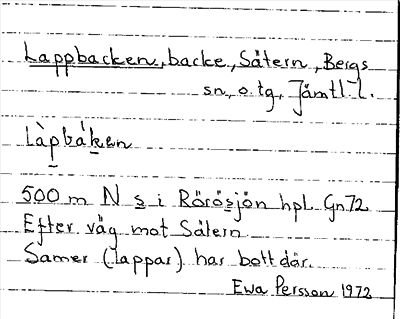 Lappbacken, backe, Sätern, Bergs
sn, o. tg, Jämtl. l.
Làpbàken
500 m N s i Rörösjön hpl. Gn72
Efter väg mot Sätern
Samer (lappar) har bott där.
Ewa Persson 1972